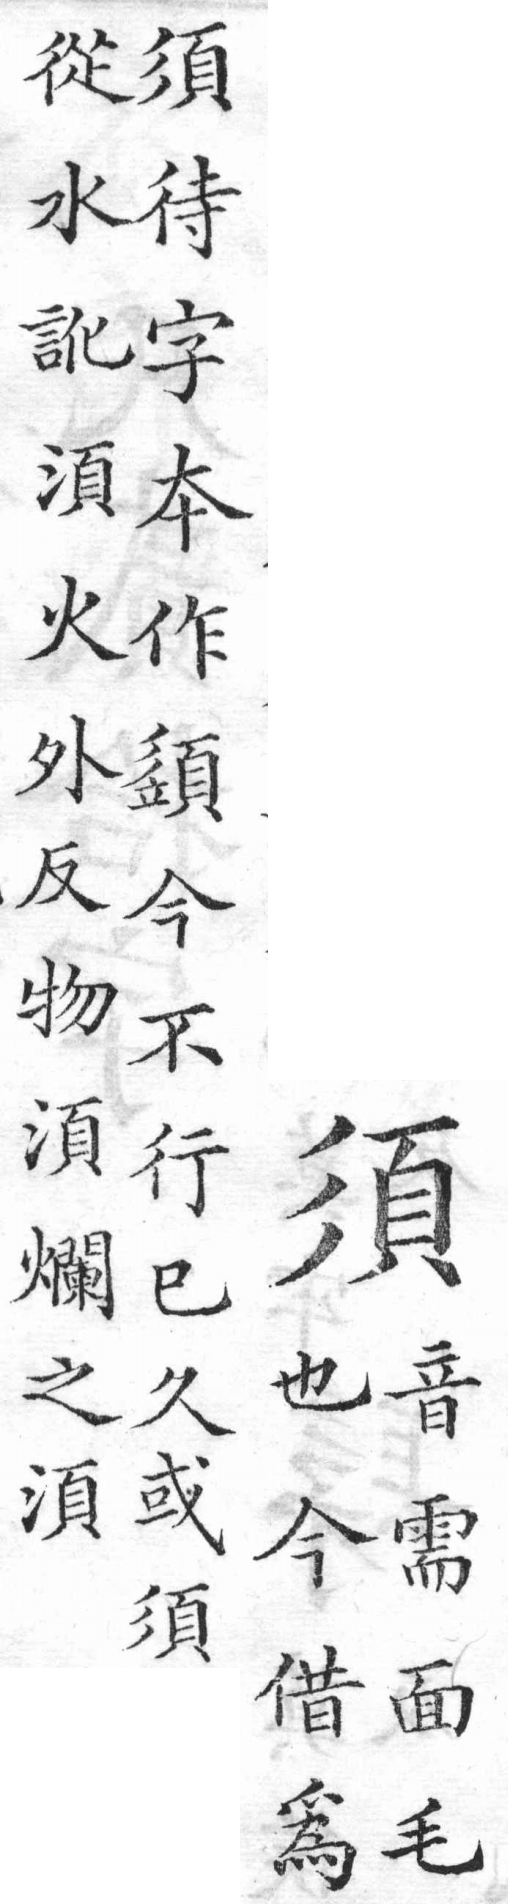 須
音需面毛
也今借爲
須待字本作䇓今不行已久或須
從水訛湏火外反物湏爛之湏